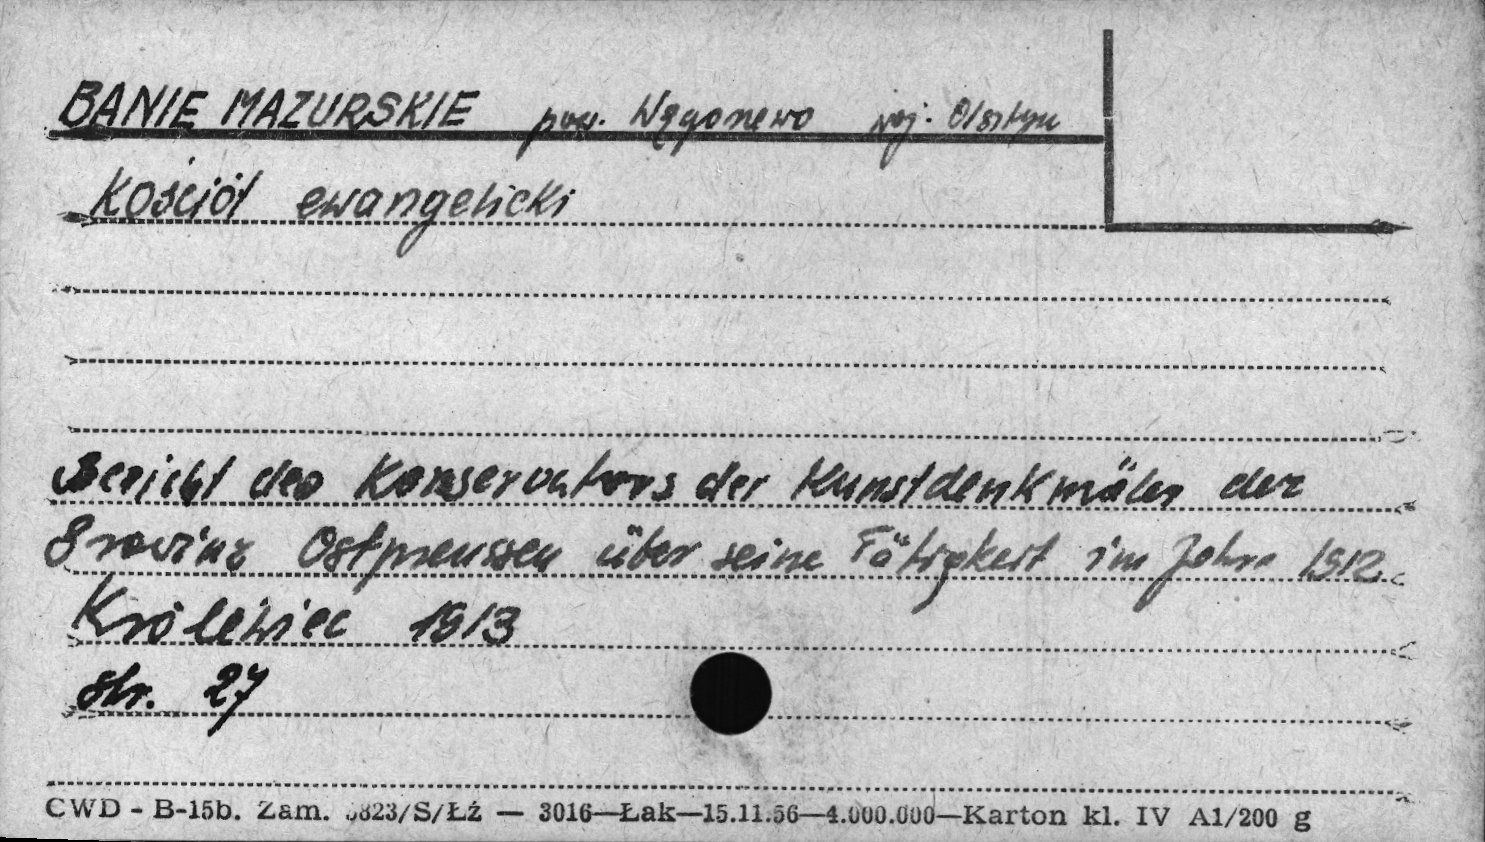 BANIE MAZURSKIE pow. Węgorzewo woj. Olsztyn
Kościół ewangelicki
Bericht des Konservators der Kunstdenkmäler der
Provinz Ostpreussen über seine Tätigkeit im Jahre 1912
Królewiec 1913
str. 27
CWD - B-15b. Zam. 5823/S/Łź — 3016—Łak—15.11.56—4.000.000—Karton kl. IV A1/200 g